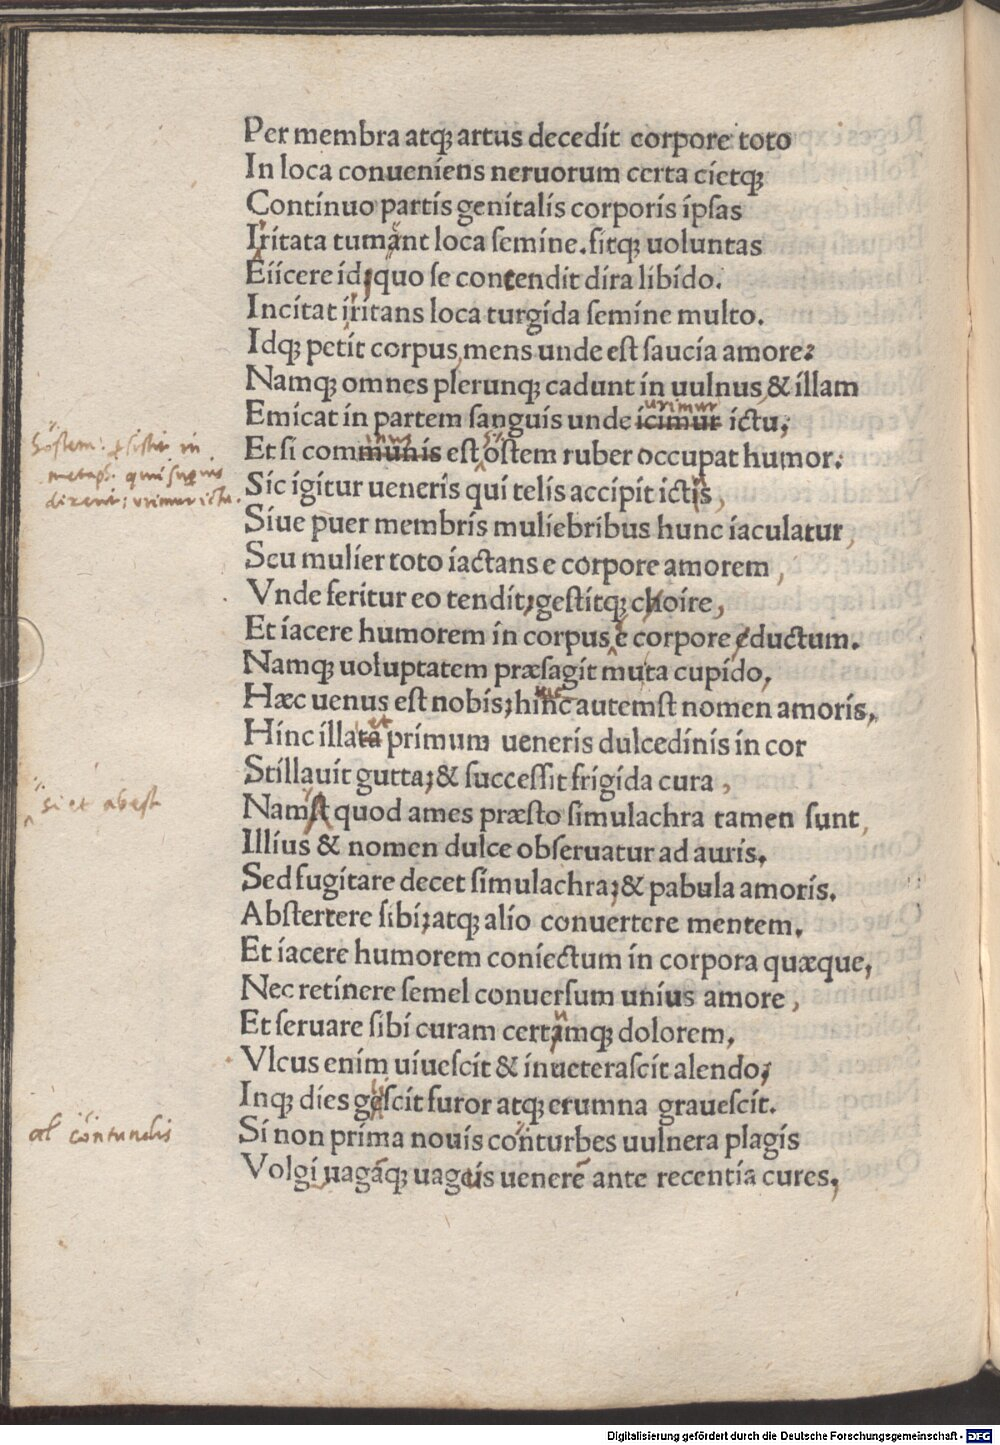 Per membra atq; artus decedit corpore toto
In loca conueniens neruorum certa cietq;
Continuo partis genitalis corporis ipsas
Iritata tumant loca semine. fitq; uoluntas
Eiicere id; quo se contendit dira libido.
Incitat iritans loca turgida semine multo.
Idq; petit corpus, mens unde est saucia amore:
Namq; omnes plerunq; cadunt in uulnus, & illam
urimur
Emicat in partem sanguis unde icimur ictu;
hostem: in
Et si communis est ostem ruber occupat humor:
metaph. qui supra
Sic igitur ueneris qui telis accipit ictis,
dixerit; urimur ictu.
Siue puer membris muliebribus hunc iaculatur,
Seu mulier toto iactans e corpore amorem,
Vnde feritur eo tendit; gestitq; choire,
Et iacere humorem in corpus e corpore eductum.
Namq; uoluptatem præsagit muta cupido,
Hæc uenus est nobis; hinc autemst nomen amoris,
et
Hinc illata primum ueneris dulcedinis in cor
Stillauit gutta; & successit frigida cura,
si et abest
Namst quod ames præsto simulachra tamen sunt,
Illius & nomen dulce obseruatur ad auris.
Sed fugitare decet simulachra; & pabula amoris.
Abstertere sibi; atq; alio conuertere mentem.
Et iacere humorem coniectum in corpora quæque,
Nec retinere semel conuersum unius amore,
Et seruare sibi curam certamq; dolorem,
Vlcus enim uiuescit & inueterascit alendo;
Inq; dies gescit furor atq; erumna grauescit.
al contundis
Si non prima nouis conturbes uulnera plagis
Volgi uagāq; uageis uenerē ante recentia cures,
Digitalisierung gefördert durch die Deutsche Forschungsgemeinschaft - DFG